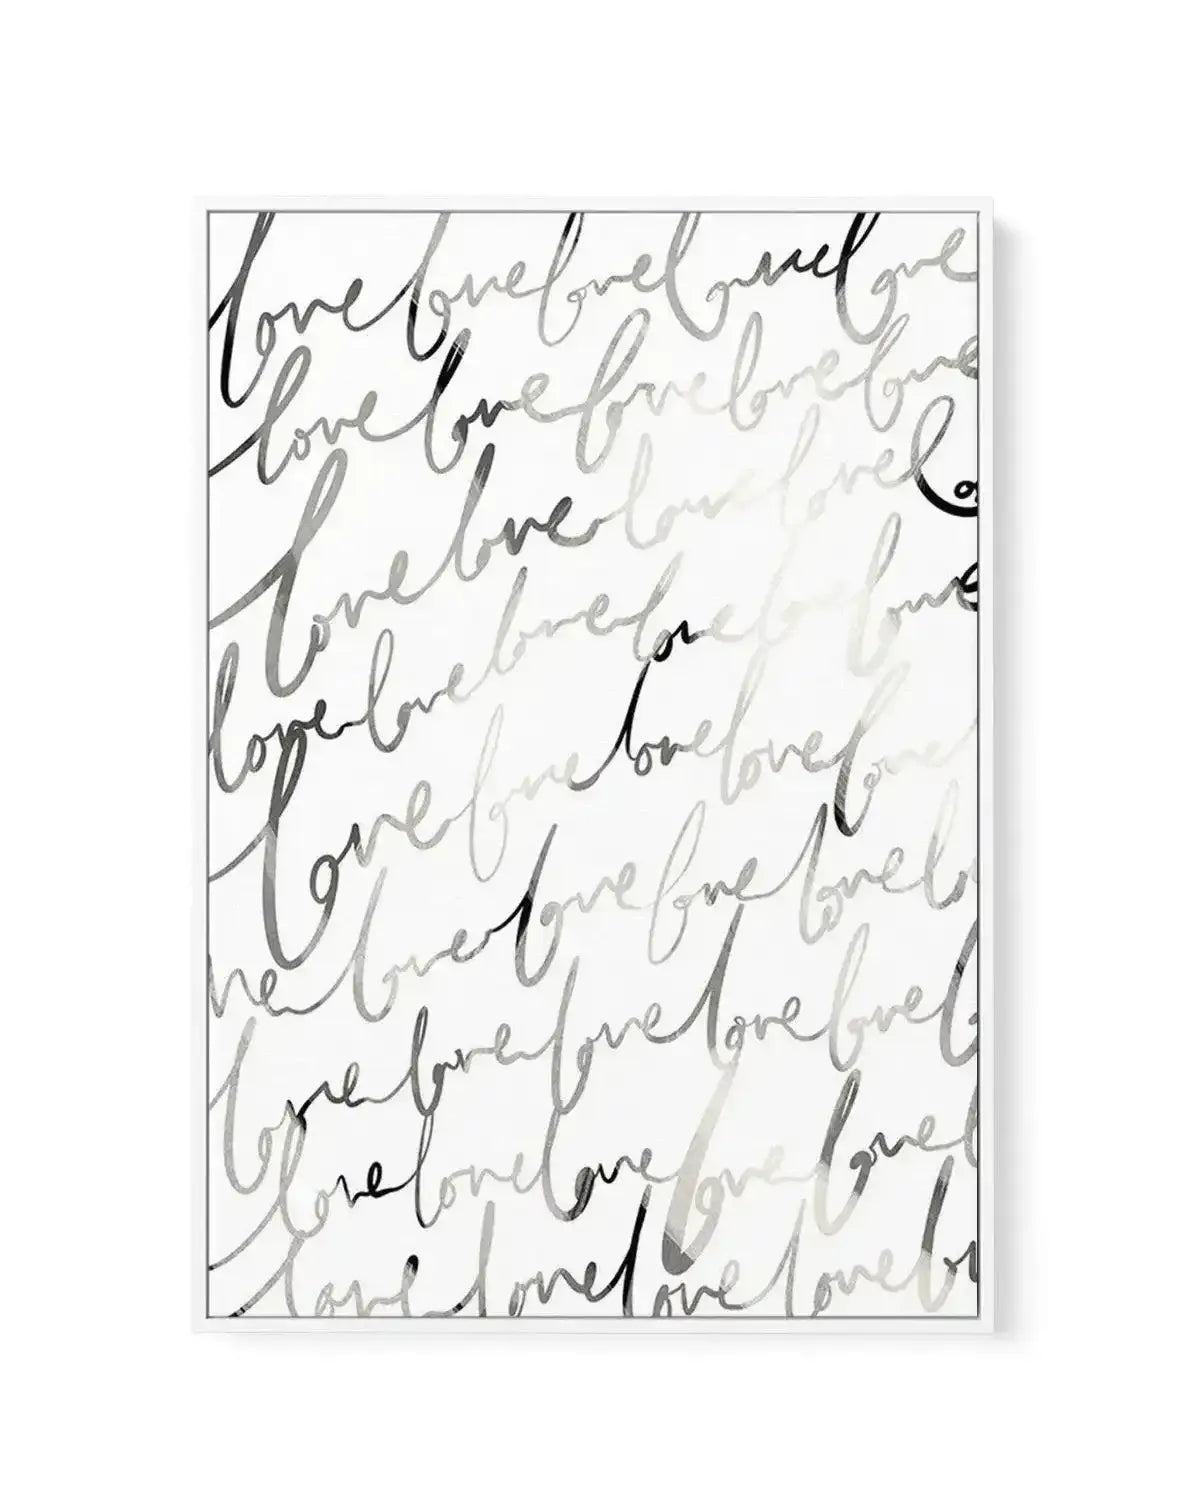 love love love love love
love love love love love
love love love love lo
love love love love love love
love love love love love love
ne love love love love lo
love love love love love l
love love love love love l
love love love love lo